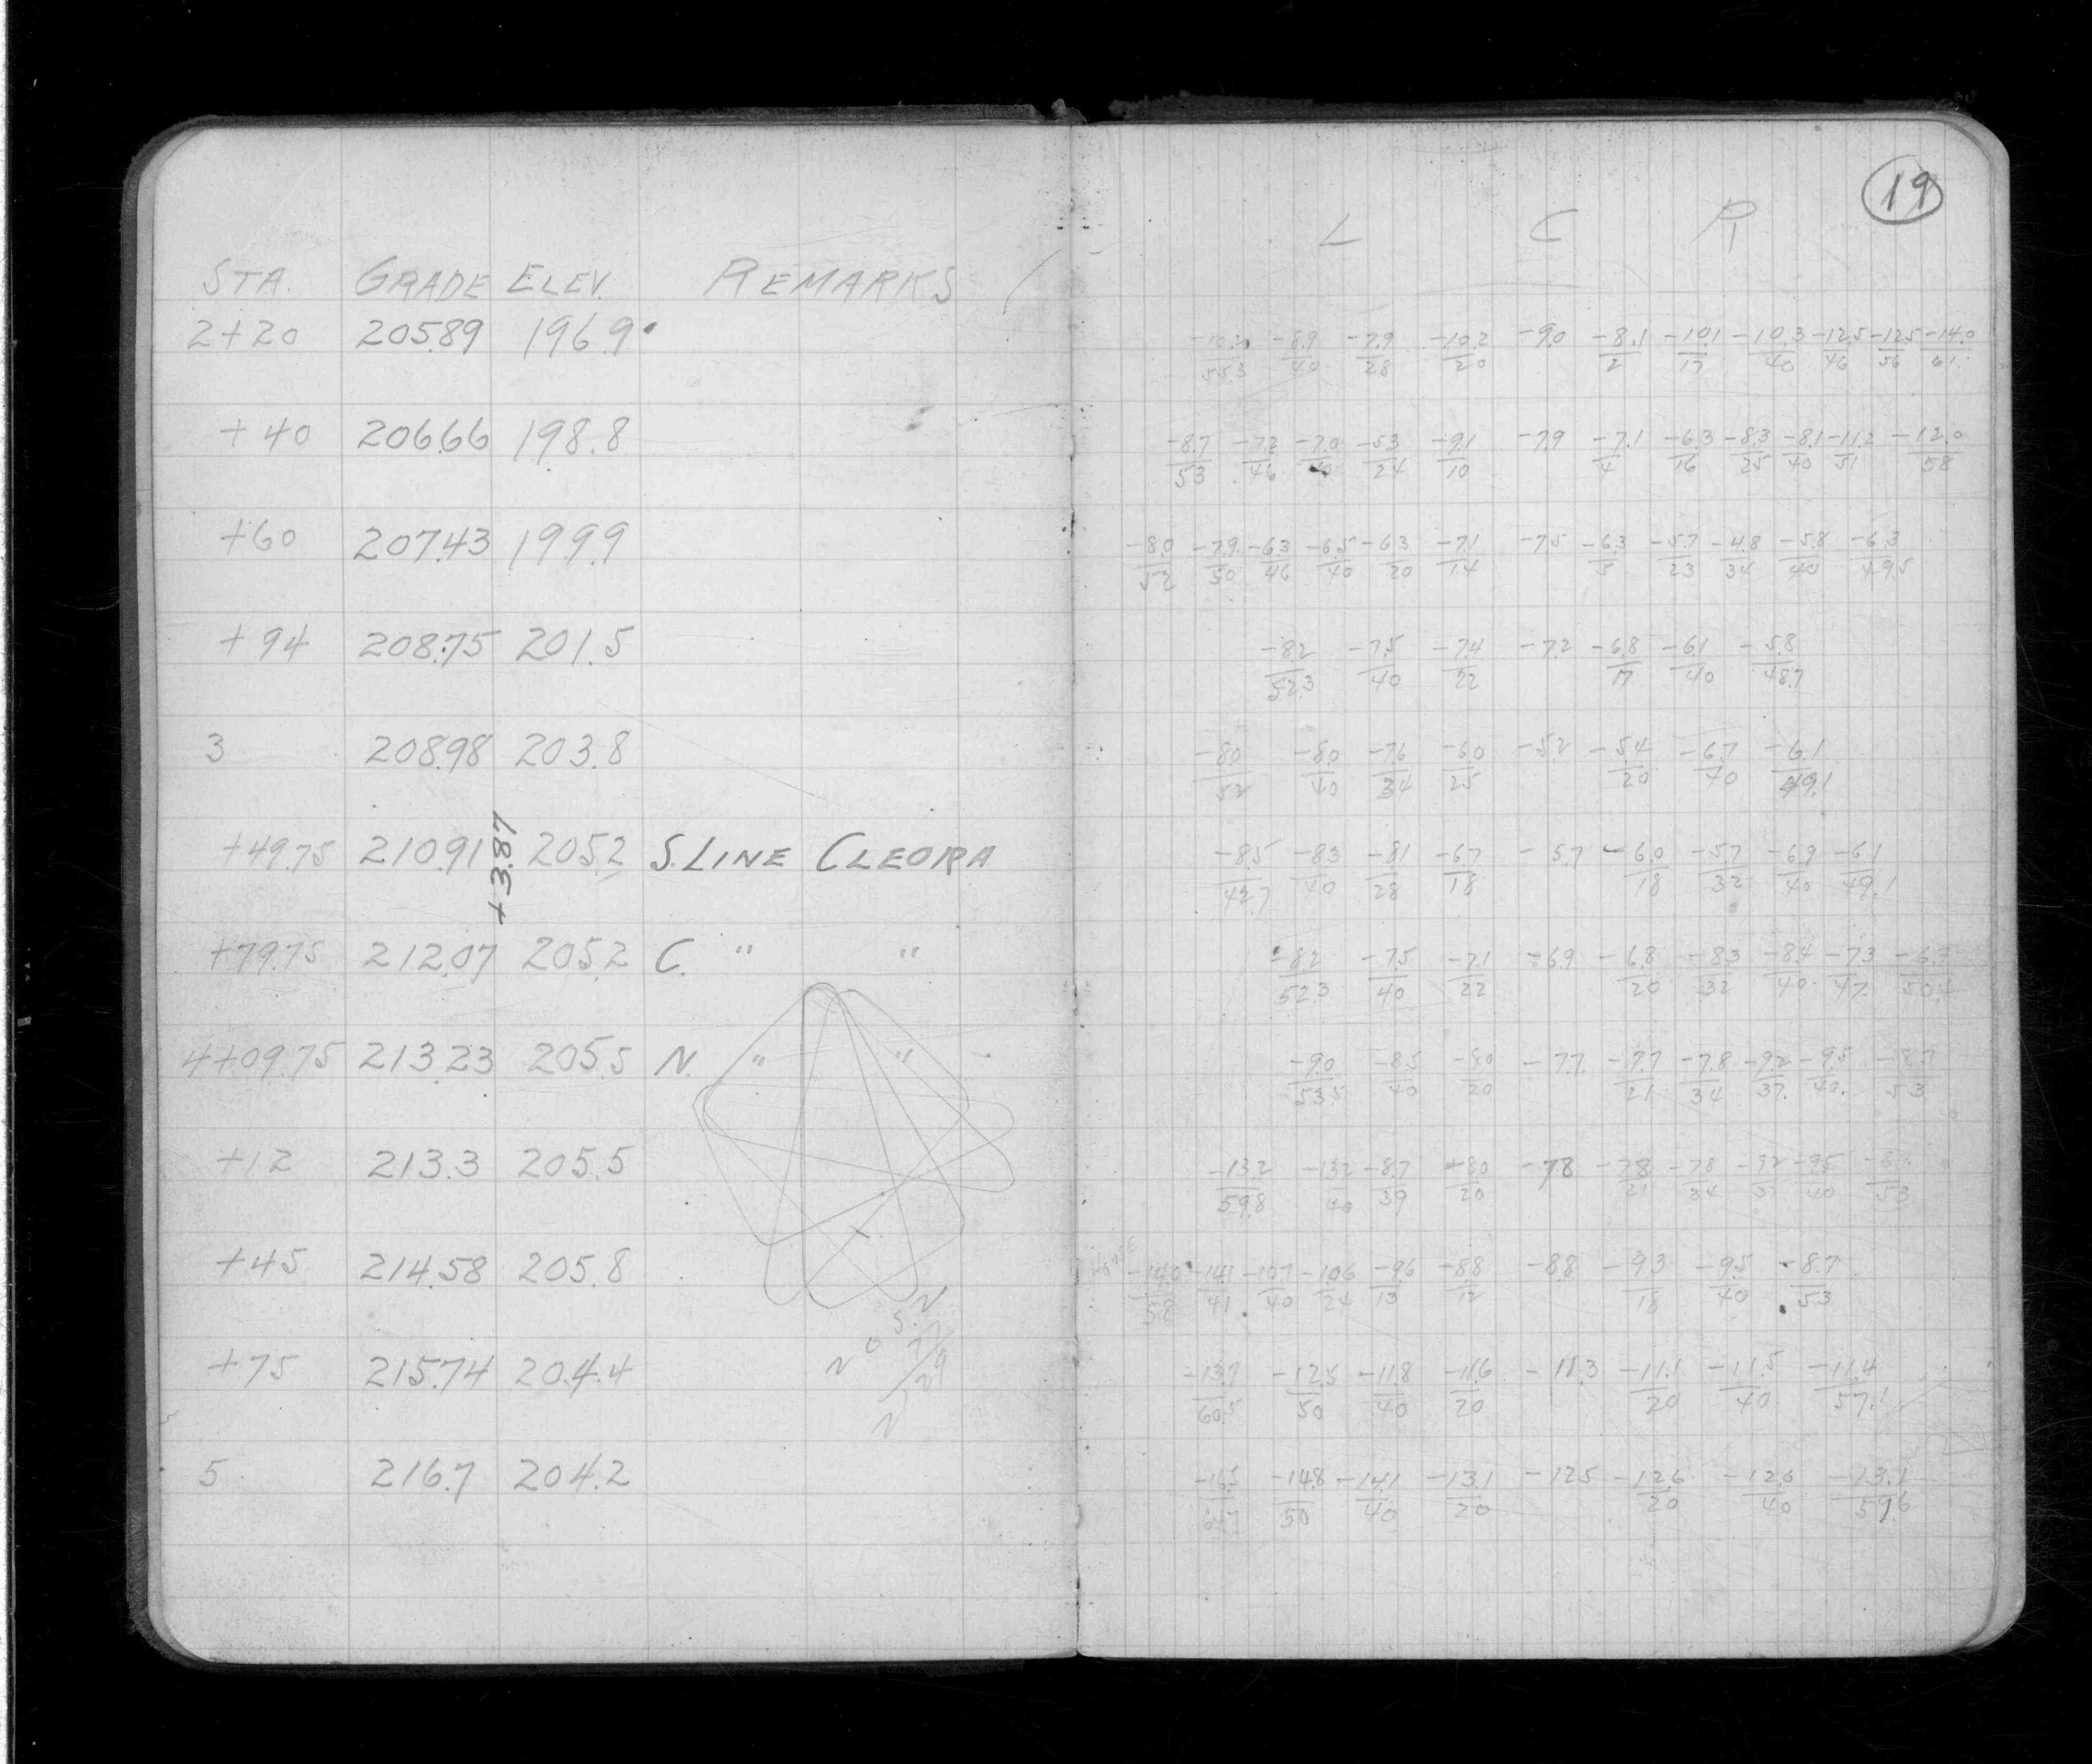 STA. GRADE ELEV. REMARKS
2+20 205.89 196.9
+40 206.66 198.8
+60 207.43 199.9
+94 208.75 201.5
3 208.98 203.8
+49.75 210.91 205.2 S. LINE CLEORA
+3.87
+79.75 212.07 205.2 C. " "
4+09.75 213.23 205.5 N. " "
+12 213.3 205.5
+45 214.58 205.8
+75 215.74 204.4
5 216.7 204.2
19
L C R
-10.2/55.3 -8.9/40 -7.9/28 -10.2/20 -9.0 -8.1/2 -10.1/17 -10.3/40 -12.5/46 -12.5/56 -14.0/61
-8.7/53 -7.2/46 -7.0/40 -5.3/24 -9.1/10 -7.9 -7.1/4 -6.3/16 -8.3/25 -8.1/40 -11.2/51 -12.0/58
-8.0/52 -7.9/50 -6.3/46 -6.5/40 -6.3/20 -7.1/14 -7.5 -6.3/5 -5.7/23 -4.8/34 -5.8/40 -6.3/49.5
-8.2/52.3 -7.5/40 -7.4/22 -7.2 -6.8/17 -6.1/40 -5.8/48.7
-8.0/52 -8.0/40 -7.6/34 -6.0/25 -5.2 -5.4/20 -6.7/40 -6.1/49.1
-8.5/42.7 -8.3/40 -8.1/28 -6.7/18 -5.7 -6.0/18 -5.7/32 -6.9/40 -6.1/49.1
-8.2/52.3 -7.5/40 -7.1/22 -6.9 -6.8/20 -8.3/32 -8.4/40 -7.3/47 -6.9/50.4
-9.0/53.5 -8.5/40 -8.0/20 -7.7 -7.7/21 -7.8/34 -9.2/37 -9.5/40 -8.7/53
-13.2/59.8 -13.2/40 -8.7/39 -8.0/20 -7.8 -7.8/21 -7.8/34 -9.2/37 -9.5/40 -8.7/53
-14.0/58 -14.1/41 -10.7/40 -10.6/24 -9.6/13 -8.8/12 -8.8 -9.3/18 -9.5/40 -8.7/53
-13.7/60.5 -12.5/50 -11.8/40 -11.6/20 -11.3 -11.1/20 -11.5/40 -11.4/57.1
-14.8/50 -14.1/40 -13.1/20 -12.5 -12.6/20 -12.6/40 -13.1/59.6